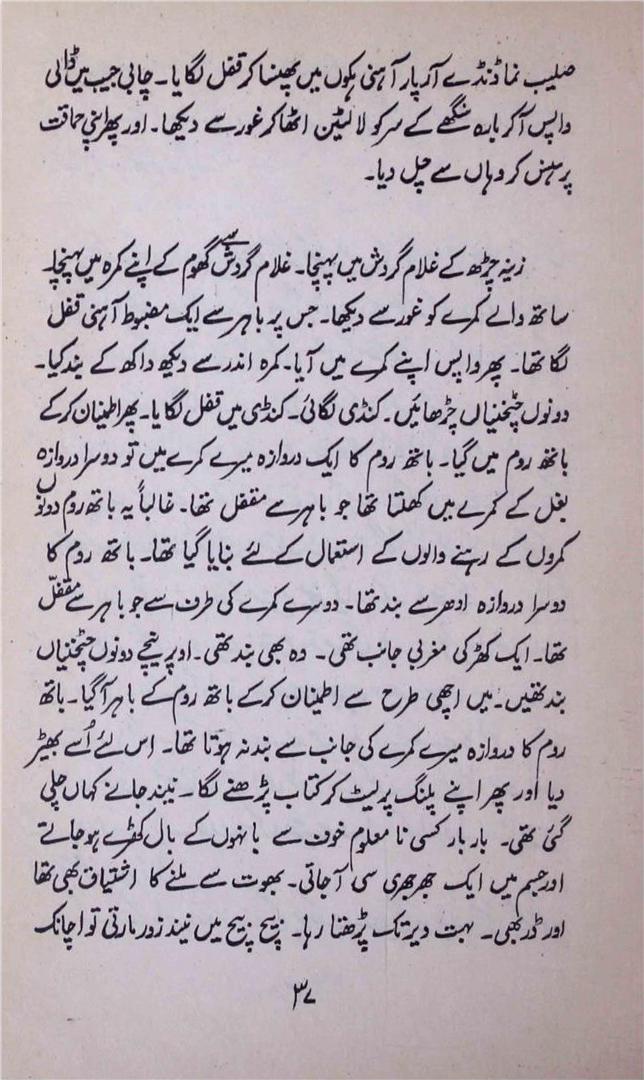 صلیب نما ڈنڈے آر پار آہنی ہکوں میں پھنسا کر قفل لگایا۔ چابی جیب میں ڈالی
واپس آ کر بارہ سنگھے کے سر کو لالٹین اٹھا کر غور سے دیکھا۔ اور پھر اپنی حماقت
پر ہنس کر وہاں سے چل دیا۔
زینہ چڑھ کے غلام گردش میں پہنچا۔ غلام گردش سے گھوم کے اپنے کمرہ میں پہنچا۔
ساتھ والے کمرے کو غور سے دیکھا۔ جس پر باہر سے ایک مضبوط آہنی قفل
لگا تھا۔ پھر واپس اپنے کمرے میں آیا۔ کمرہ اندر سے دیکھ داکھ کے بند کیا۔
دونوں چٹخنیاں چڑھائیں۔ کنڈی لگائی۔ کنڈی میں قفل لگایا۔ پھر اطمینان کر کے
باتھ روم میں گیا۔ باتھ روم کا ایک دروازہ میرے کمرے میں تو دوسرا دروازہ
بغل کے کمرے میں کھلتا تھا جو باہر سے مقفل تھا۔ غالباً یہ باتھ روم دونوں
کمروں کے رہنے والوں کے استعمال کے لئے بنایا گیا تھا۔ باتھ روم کا
دوسرا دروازہ ادھر سے بند تھا۔ دوسرے کمرے کی طرف سے جو باہر سے مقفّل
تھا۔ ایک کھڑکی مغربی جانب تھی۔ وہ بھی بند تھی۔ اوپر نیچے دونوں چٹخنیاں
بند تھیں۔ میں اچھی طرح سے اطمینان کر کے باتھ روم کے باہر آ گیا۔ باتھ
روم کا دروازہ میرے کمرے کی جانب سے بند نہ ہوتا تھا۔ اس لئے اُسے بھیڑ
دیا اور پھر اپنے پلنگ پر لیٹ کر کتاب پڑھنے لگا۔ نیند جانے کہاں چلی
گئی تھی۔ بار بار کسی نا معلوم خوف سے بانہوں کے بال کھڑے ہو جاتے
اور جسم میں ایک جھرجھری سی آ جاتی۔ بھوت سے ملنے کا اشتیاق بھی تھا
اور ڈر بھی۔ بہت دیر تک پڑھتا رہا۔ بیچ بیچ میں نیند زور مارتی تو اچانک
۳۷